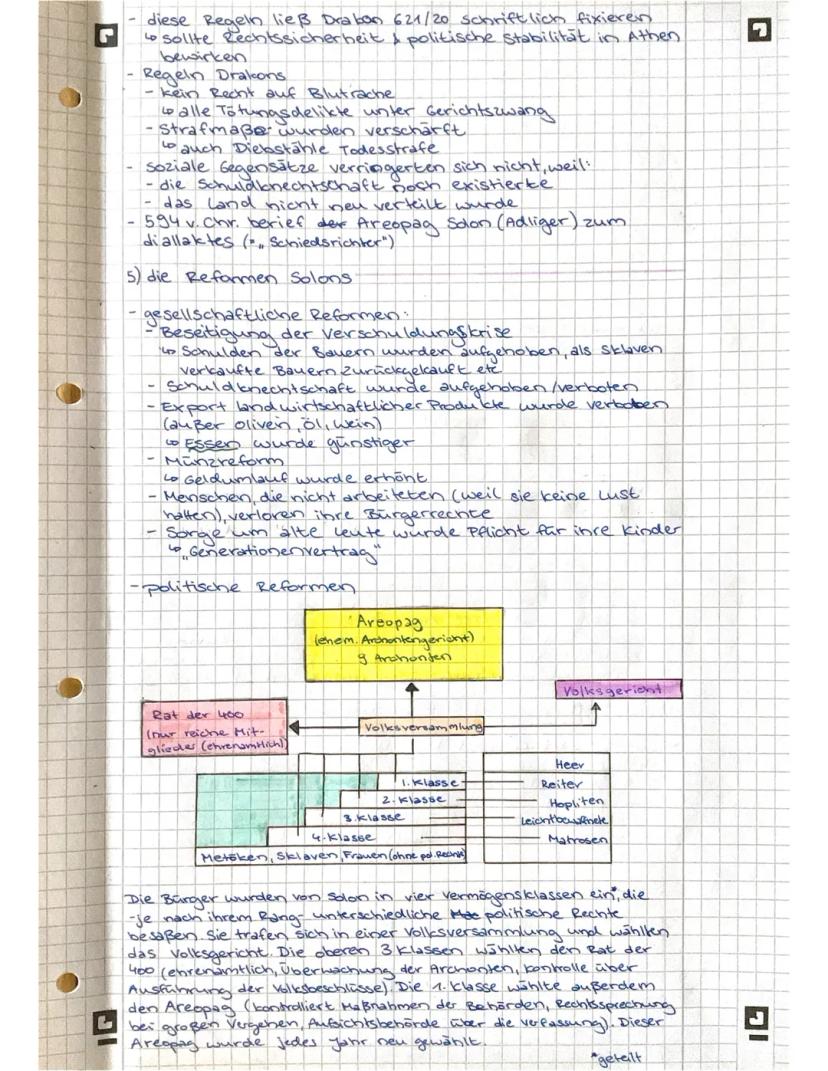 - diese Regeln ließ Drakon 621/20 schriftlich fixieren
↳ sollte Rechtssicherheit & politische Stabilität in Athen
bewirken
- Regeln Drakons
- kein Recht auf Blutrache
↳ alle Tötungsdelikte unter Gerichtszwang
- Strafmaße wurden verschärft
↳ auch Diebstähle Todesstrafe
- soziale Gegensätze verringerten sich nicht, weil:
- die Schuldknechtschaft noch existierte
- das Land nicht neu verteilt wurde
- 594 v. Chr. berief der Areopag Solon (Adliger) zum
diallaktes (="Schiedsrichter")
5) die Reformen Solons
- gesellschaftliche Reformen:
- Beseitigung der Verschuldungskrise
↳ Schulden der Bauern wurden aufgehoben, als Sklaven
verkaufte Bauern zurückgekauft etc
- Schuldknechtschaft wurde aufgehoben/verboten
- Export landwirtschaftlicher Produkte wurde verboten
(außer Oliven, Öl, Wein)
↳ Essen wurde günstiger
- Münzreform
↳ Geldumlauf wurde erhöht
- Menschen, die nicht arbeiteten (weil sie keine Lust
hatten), verloren ihre Bürgerrechte
- Sorge um alte Leute wurde Pflicht für ihre Kinder
↳ "Generationenvertrag"
- politische Reformen
Areopag
(ehem. Archontengericht)
9 Archonten
Volksgericht
Rat der 400
(nur reiche Mit-
glieder (ehrenamtlich)
Volksversammlung
Heer
1. Klasse
Reiter
2. Klasse
Hopliten
3. Klasse
Leichtbewaffnete
4. Klasse
Matrosen
Metöken, Sklaven, Frauen (ohne pol. Rechte)
Die Bürger wurden von Solon in vier Vermögensklassen ein*, die
-je nach ihrem Rang- unterschiedliche politische Rechte
besaßen. Sie trafen sich in einer Volksversammlung und wählten
das Volksgericht. Die oberen 3 Klassen wählten den Rat der
400 (ehrenamtlich, Überwachung der Archonten, Kontrolle über
Ausführung der Volksbeschlüsse). Die 1. Klasse wählte außerdem
den Areopag (kontrolliert Maßnahmen der Behörden, Rechtssprechung
bei großen Vergehen, Aufsichtsbehörde über die Verfassung). Dieser
Areopag wurde jedes Jahr neu gewählt.
*geteilt